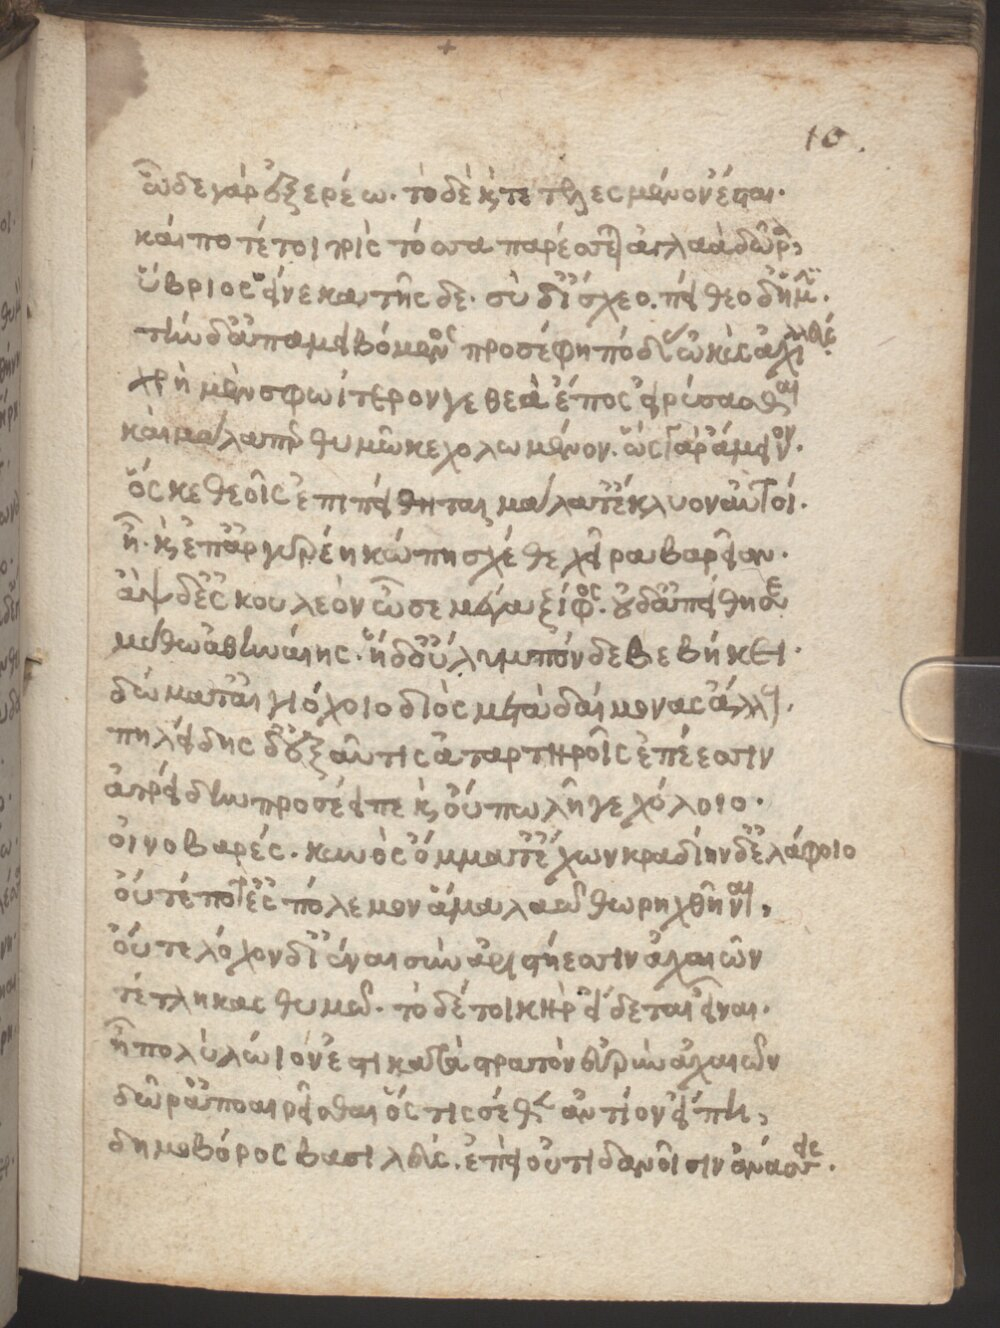 10.
ὧδε γὰρ ἐξερέω· τὸ δὲ κ τετελεσμένον ἔσται·
καί ποτέ τοι τρὶς τόσσα παρέσσεται ἀγλαὰ δῶρα,
ὕβριος εἵνεκα τῆσδε· σὺ δ' ἴσχεο. πείθεο δ' ἡμῖν·
τὴν δ' ἀπαμειβόμενος προσέφη πόδας ὠκὺς ἀχιλλεύς·
χρὴ μὲν σφωίτερον γε θεὰ ἔπος εἰρύσασθαι
καὶ μάλα περ θυμῶ κεχολωμένον. ὣς γὰρ ἄμεινον·
ὅς κε θεοῖς ἐπιπείθηται μάλα τ' ἔκλυον αὐτοί·
ἦ· κ ἐπ' ἀργυρέη κώπη σχέθε χεῖρα βαρεῖαν·
ἂψ δ' ἐς κουλεὸν ὦσε μέγα ξίφος· οὐδ' ἀπείθησε
μύθω ἀθηναίης· ἡ δ' οὔλυμπόνδε βεβήκει·
δώματ' αἰγιόχοιο διὸς μετὰ δαίμονας ἄλλους·
πηλείδης δ' ἐξαῦτις ἀταρτηροῖς ἐπέεσσιν
ἀτρείδην προσέειπε κ οὔπω λῆγε χόλοιο·
οἰνοβαρές· κυνὸς ὄμματ' ἔχων κραδίην δ' ἐλάφοιο
οὔτέ ποτ' ἐς πόλεμον ἅμα λαῶ θωρηχθῆναι,
οὔτε λόχονδ' ἰέναι σὺν ἀριστήεσσιν ἀχαιῶν
τέτληκας θυμῶ· τὸ δέ τοι κὴρ εἴδεται εἶναι·
ἦ πολὺ λώιόν ἐστι κατὰ στρατὸν εὐρὺν ἀχαιῶν
δῶρ' ἀποαιρεῖσθαι ὅς τις σέθεν ἀντίον εἴπη,
δημοβόρος βασιλεύς· ἐπεὶ οὐτιδανοῖσιν ἀνάσσεις·